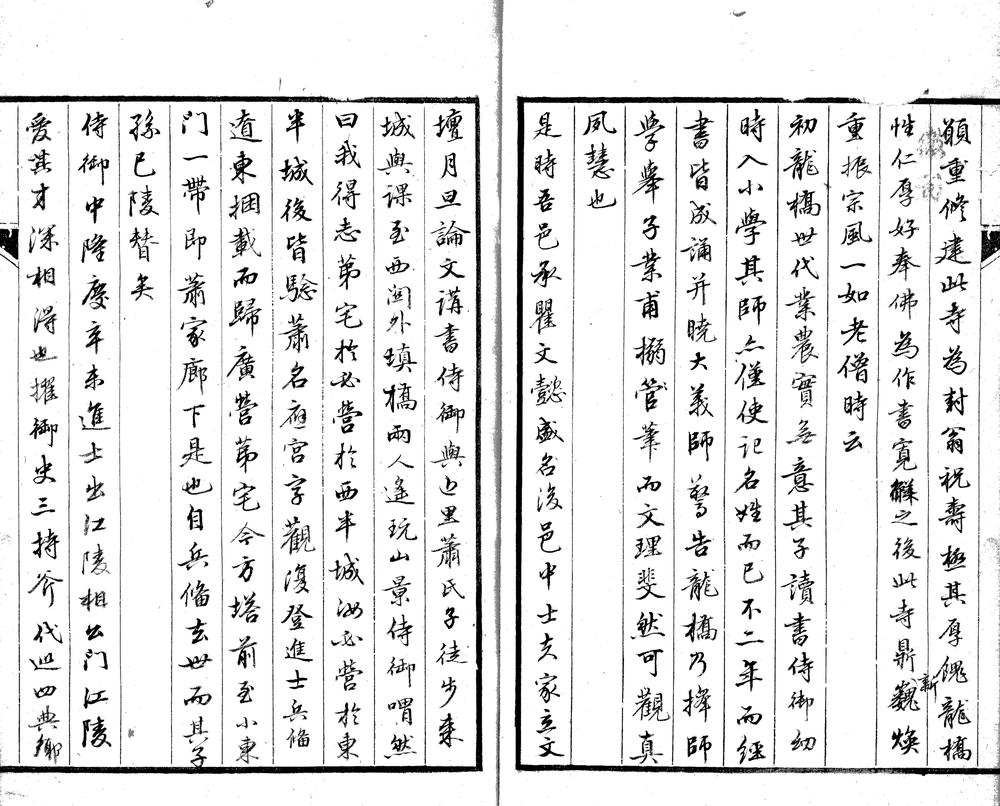 願重修建此寺為封翁祝壽極其厚餽龍橋
性仁厚好奉佛為作書寬解之後此寺鼎新巍煥
重振宗風一如老僧時云
初龍橋世代業農實無意其子讀書侍御幼
時入小學其師亦僅使記名姓而已不二年而經
書皆成誦并曉大義師驚告龍橋乃擇師
學舉子業甫搦管筆而文理斐然可觀真
夙慧也
是時吾邑承瞿文懿盛名後邑中士夫家立文
壇月旦論文講書侍御與邑里蕭氏子徒步來
城與課至西關外瑱橋兩人遙玩山景侍御喟然
曰我得志第宅於必營於西半城汝必營於東
半城後皆驗蕭名應宮字觀復登進士兵備
遼東捆載而歸廣營第宅今方塔前至小東
門一帶即蕭家廊下是也自兵備去世而其子
孫已陵替矣
侍御中隆慶辛未進士出江陵相公門江陵
愛其才深相得也擢御史三持斧代巡四典鄉